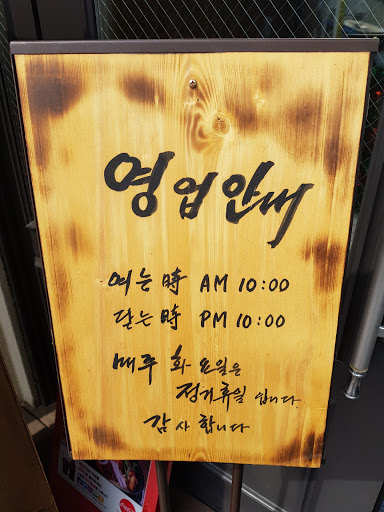 영업안내
여는 時 AM 10:00
닫는 時 PM 10:00
매주 화요일은
정기휴일 입니다.
감사합니다